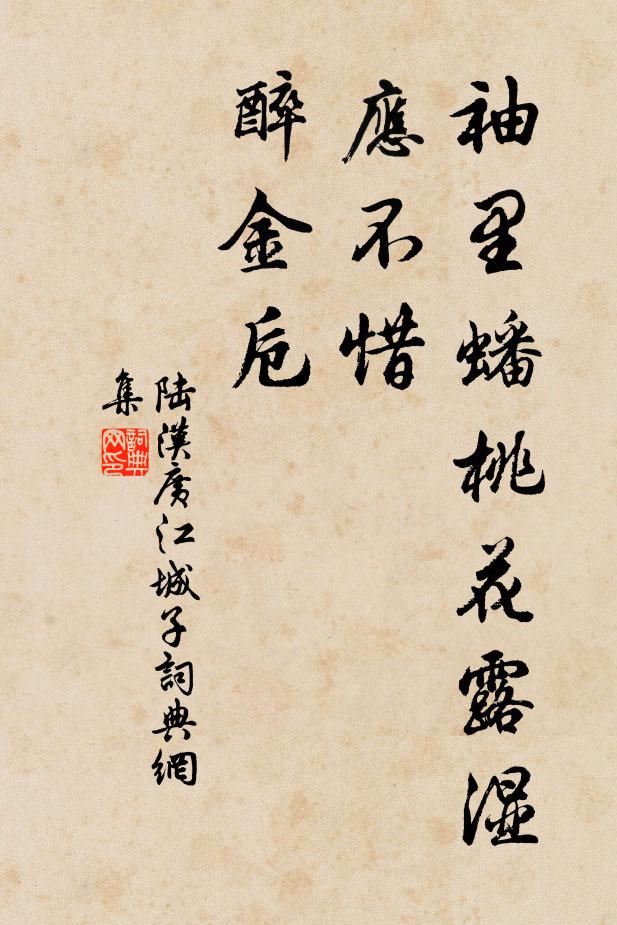 袖里蟠桃花露湿
應不惜
醉金卮
陆漢廣江城子詞典網
集
詞典
网印